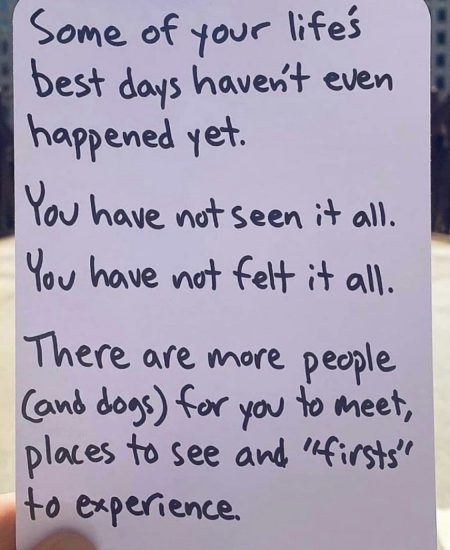 Some of your life's
best days haven't even
happened yet.
You have not seen it all.
You have not felt it all.
There are more people
(and dogs) for you to meet,
places to see and "firsts"
to experience.